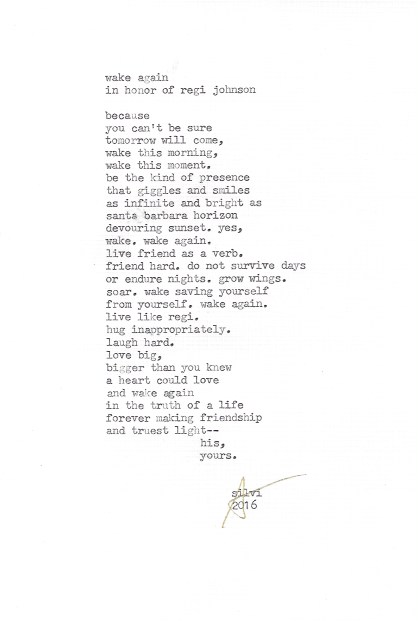 wake again
in honor of regi johnson
because
you can't be sure
tomorrow will come,
wake this morning,
wake this moment.
be the kind of presence
that giggles and smiles
as infinite and bright as
santa barbara horizon
devouring sunset. yes,
wake. wake again.
live friend as a verb.
friend hard. do not survive days
or endure nights. grow wings.
soar. wake saving yourself
from yourself. wake again.
live like regi.
hug inappropriately.
laugh hard.
love big,
bigger than you knew
a heart could love
and wake again
in the truth of a life
forever making friendship
and truest light--
his,
yours.
silvi
2016